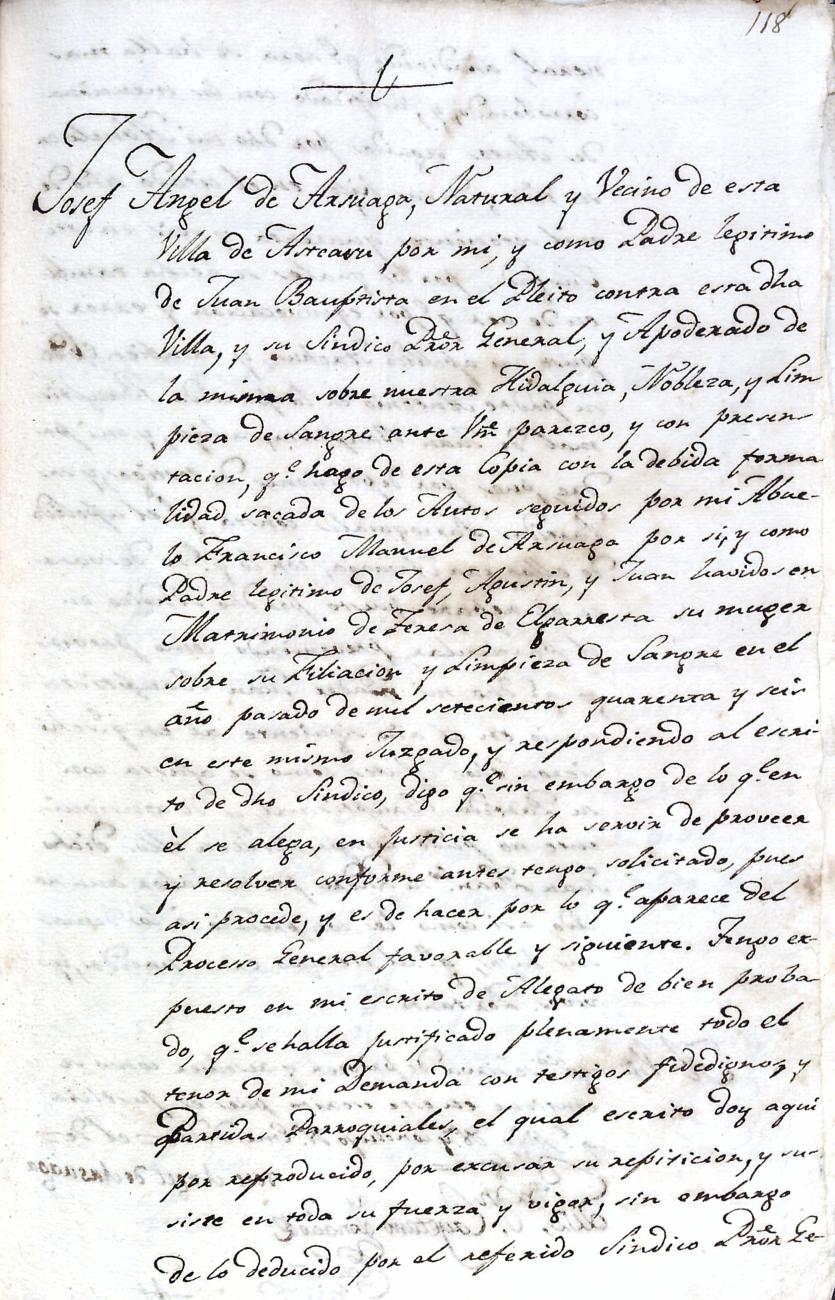 118
Josef Angel de Arsuaga, Natural y Vecino de esta
Villa de Asteasu por mi, y como Padre legitimo
de Juan Bauptista en el Pleito contra esta dha
Villa, y su Sindico Prõr General, y Apoderado de
la misma sobre nuestra Hidalguia, Nobleza, y Lim
pieza de Sangre ante Vm̃e parezco, y con presen-
tacion, q.e hago de esta Copia con la debida forma
lidad sacada de los Autos seguidos por mi Abue-
lo Francisco Manuel de Arsuaga por si, y como
Padre legitimo de Josef, Agustin, y Juan havidos en
Matrimonio de Teresa de Elgarresta su muger
sobre su Filiacion y Limpieza de Sangre en el
año pasado de mil setecientos quarenta y seis
en este mismo Juzgado, y respondiendo al escri-
to de dho Sindico, digo q.e sin embargo de lo q.e en
èl se alega, en Justicia se ha servir de proveer
y resolver conforme antes tengo solicitado, pues
asi procede, y es de hacer por lo q.e aparece del
Processo General favorable y siguiente. Tengo ex-
puesto en mi escrito de Alegato de bien proba-
do, q.e se halla justificado plenamente todo el
tenor de mi Demanda con testigos fidedignos, y
Partidas Parroquiales, el qual escrito doy aqui
por reproducido, por excusar su repiticion, y su-
siste en toda su fuerza y vigor, sin embargo
de lo deducido por el referido Sindico Prõr Ge-